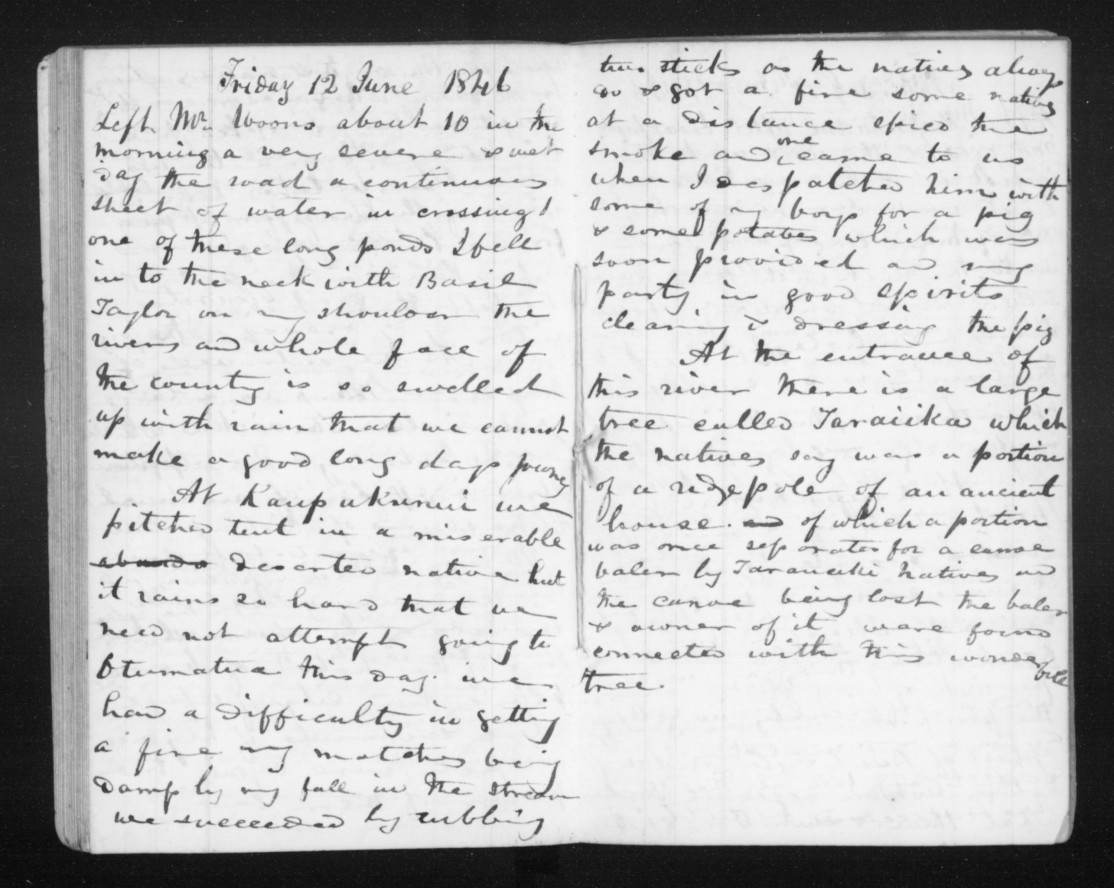 Friday 12 June 1846
Left Mr. Woons about 10 in the
morning a very severe & wet
day the road a continuous
sheet of water in crossing
one of these long ponds I fell
in to the neck with Basil
Taylor on my shoulder the
rivers and whole face of
the country is so swelled
up with rain that we cannot
make a good long days journey
At Kaupukunui we
pitched tent in a miserable
deserted native hut
it rains so hard that we
need not attempt going to
Otumatua this day. we
had a difficulty in getting
a fire my matches being
damp by my fall in the stream
we succeeded by rubbing
two sticks as the natives always
do & got a fire some natives
at a distance spied the
smoke and one came to us
when I despatched him with
some of my boys for a pig
& some potatoes which were
soon provided and my
party in good spirits
cleaning & dressing the pig
At the entrance of
this river there is a large
tree called Taraiika which
the natives say was a portion
of a ridgepole of an ancient
house. and of which a portion
was once separated for a canoe
baler by Taranaki Natives and
the canoe being lost the baler
& owner of it were found
connected with this wonderful
tree.